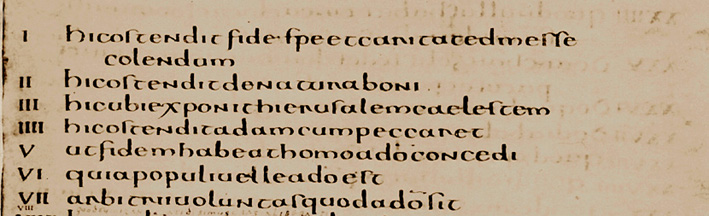 I hicostenditfide·speetcaritatedmesse
colendum
II hicostenditdenaturaboni
III hicubiexponithierusalemcaelestem
IIII hicostenditadamcumpeccaret
V utfidemhabeathomoadōconcedi
VI quiapopuliuelleadōest
VII arbitriiuoluntasquodadōsit
VIII